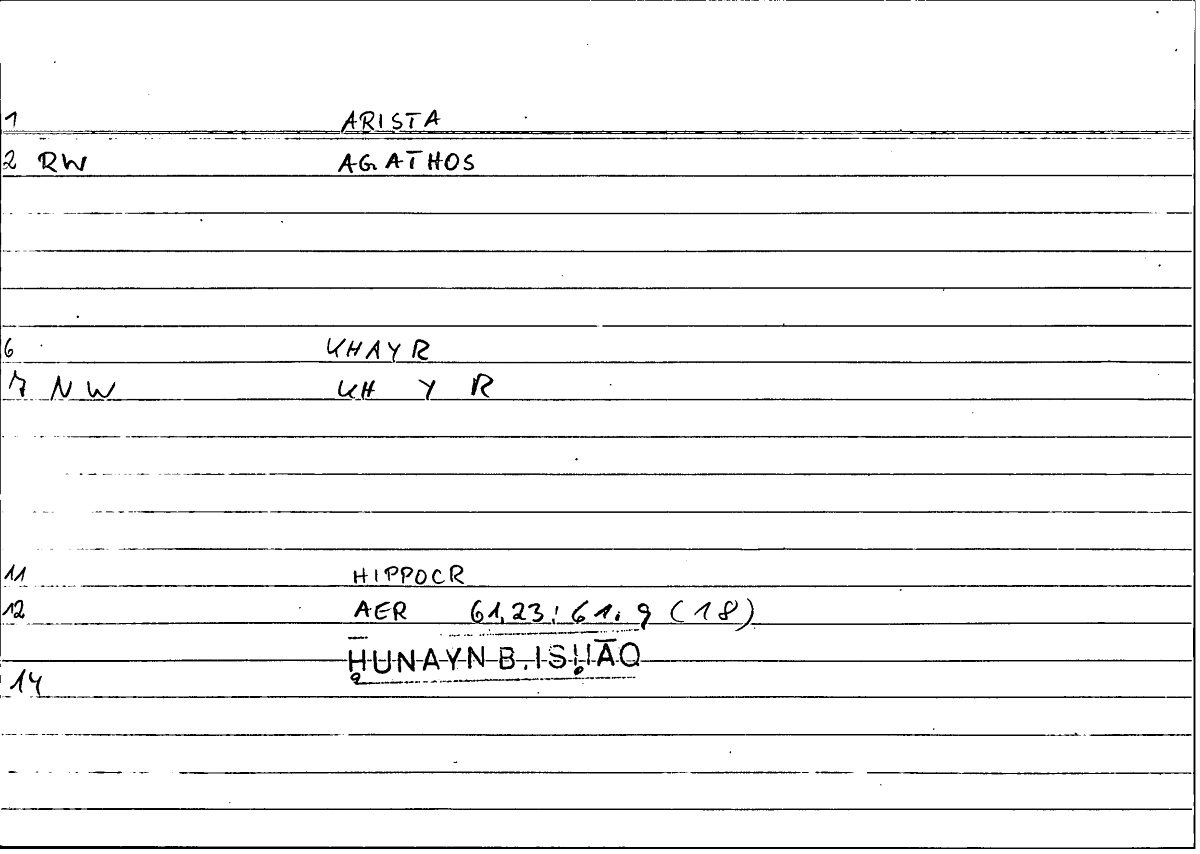 1 ARISTA
2 RW AGATHOS
6 KHAYR
7 NW KH Y R
11 HIPPOCR
12 AER 61,23: 61.9 (18)
ḤUNAYN B. ISḤĀQ
14